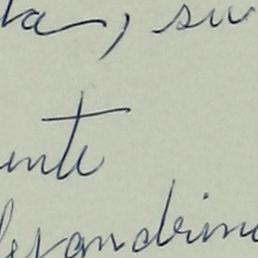 ta, su
ente
lexandrino